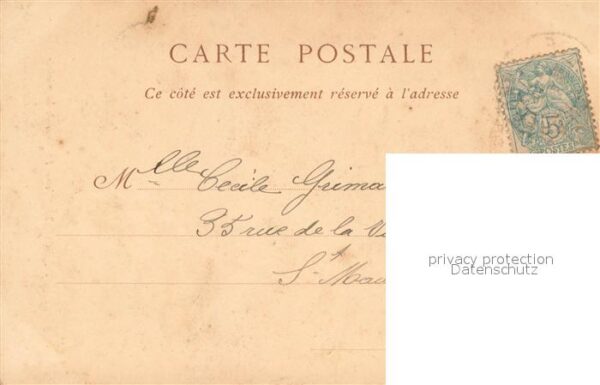 CARTE POSTALE
Ce côté est exclusivement réservé à l'adresse
Mlle Cecile Grima
35 rue de la V
St Mau
5
privacy protection
Datenschutz